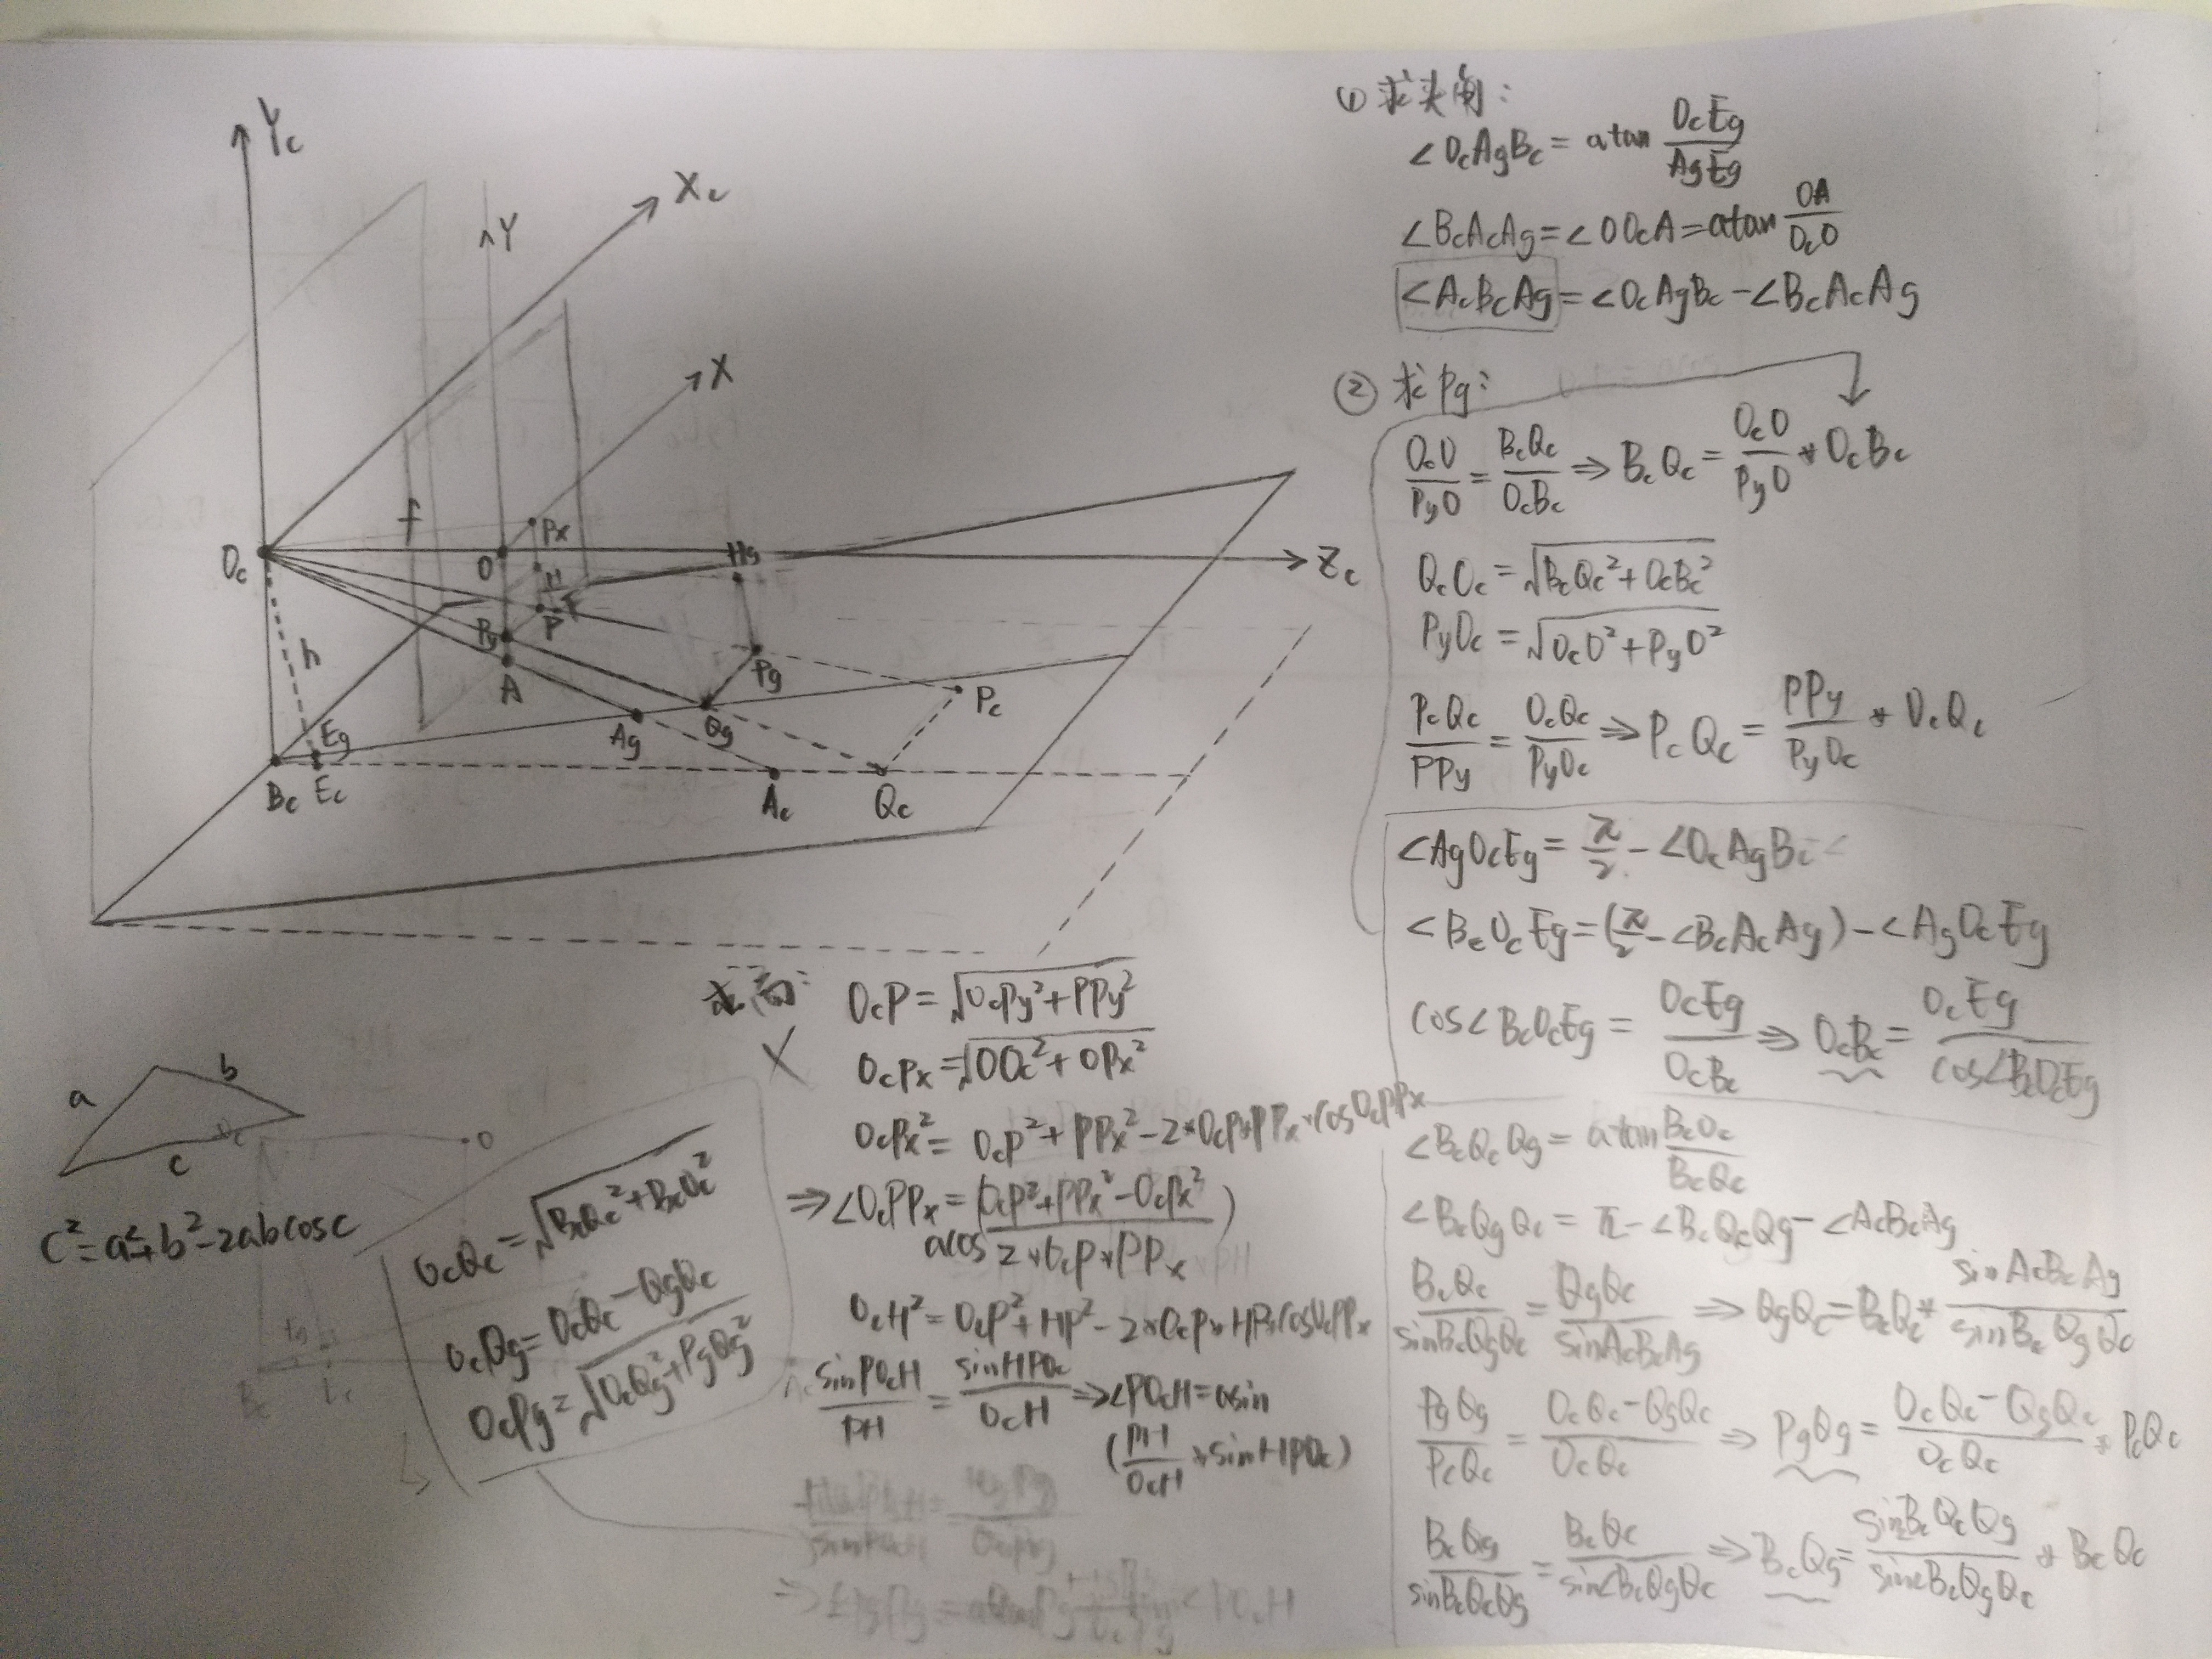 Yc
Xc
Y
X
f
Px
O
Oc
Hg
Zc
H
P
Py
h
A
Pg
Pc
Ag
Qg
Eg
Bc
Ec
Ac
Qc
① 求夹角:
∠OcAgBc = atan OcEg/AgEg
∠BcAcAg = ∠OOcA = atan OA/OcO
∠AcBcAg = ∠OcAgBc - ∠BcAcAg
② 求Pg:
OcO/PyO = BcQc/OcBc ⇒ BcQc = OcO/PyO * OcBc
QcOc = √(BcQc²+OcBc²)
PyOc = √(OcO²+PyO²)
PcQc/PPy = OcQc/PyOc ⇒ PcQc = PPy/PyOc * OcQc
∠AgOcEg = π/2 - ∠OcAgBc
∠BcOcEg = (π/2 - ∠BcAcAg) - ∠AgOcEg
cos∠BcOcEg = OcEg/OcBc ⇒ OcBc = OcEg/cos∠BcOcEg
∠BcQcQg = atan BcOc/BcQc
∠BcQgQc = π - ∠BcQcQg - ∠AcBcAg
BcQc/sinBcQgQc = QgQc/sinAcBcAg ⇒ QgQc = BcQc * sinAcBcAg/sinBcQgQc
PgQg/PcQc = OcQc-QgQc/OcQc ⇒ PgQg = OcQc-QgQc/OcQc * PcQc
BcQg/sinBcQcQg = BcQc/sin∠BcQgQc ⇒ BcQg = sinBcQcQg/sin∠BcQgQc * BcQc
OcP = √(OcPy²+PPy²)
OcPx = √(OOc²+OPx²)
OcPx² = OcP²+PPx²-2*OcP*PPx*cosOcPPx
⇒ ∠OcPPx = acos(OcP²+PPx²-OcPx²/2*OcP*PPx)
OcH² = OcP²+HP²-2*OcP*HP*cosOcPPx
sinPOcH/PH = sinHPOc/OcH ⇒ ∠POcH = asin
(PH/OcH * sinHPOc)
a
b
c
c²=a²+b²-2abcosc
Oc
O
Bc
OcQc = √(BcQc²+BcOc²)
OcQg = OcQc - QgQc
OcPg = √(OcQg²+PgQg²)